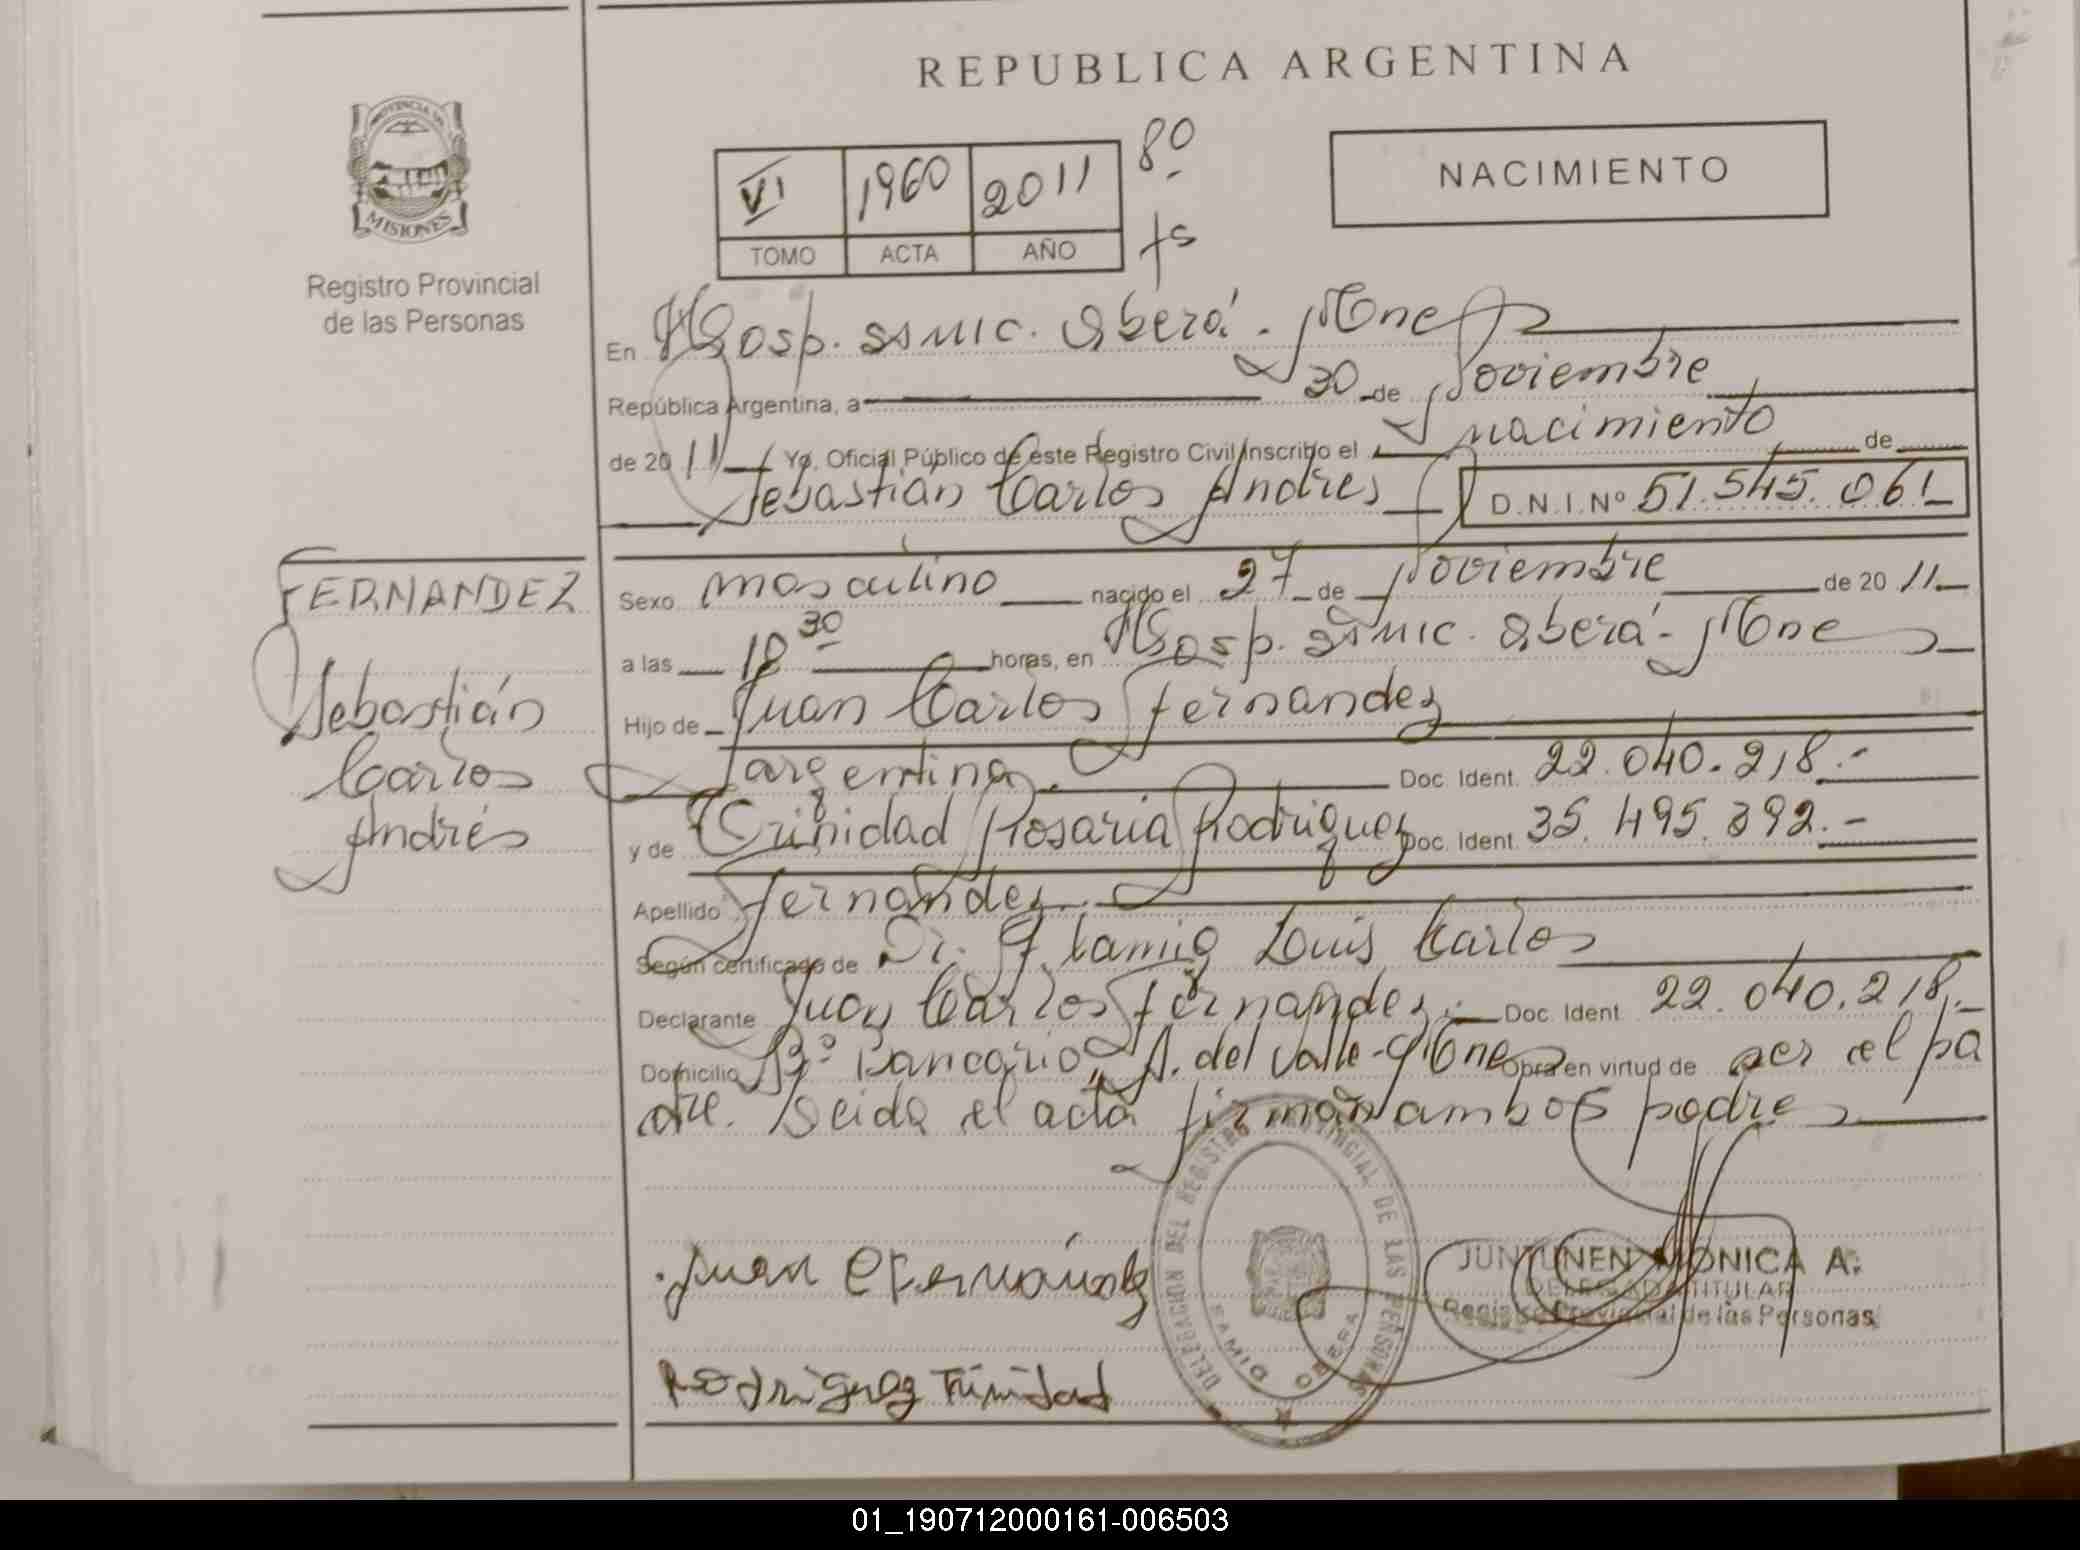 REPUBLICA ARGENTINA
PROVINCIA DE
MISIONES
Registro Provincial
de las Personas
VI 1960 2011 80
TOMO ACTA AÑO fs
NACIMIENTO
En Hosp. SAMIC. Oberá - Mnes
República Argentina, a 30 de Noviembre
de 2011 Yo, Oficial Público de este Registro Civil Inscribo el nacimiento de
Sebastián Carlos Andrés D.N.I. Nº 51.545.061
FERNANDEZ
Sebastián
Carlos
Andrés
Sexo masculino nacido el 27 de Noviembre de 2011
a las 18 30 horas, en Hosp. SAMIC. Oberá - Mnes
Hijo de Juan Carlos Fernandez
argentina. Doc. Ident. 22.040.218.-
y de Trinidad Rosaria Rodriguez Doc. Ident. 35.495.392.-
Apellido Fernandez
Según certificado de Dr. Luis Carlos
Declarante Juan Carlos Fernandez Doc. Ident. 22.040.218.-
Domicilio Bº Bancario, A. del Valle - Mnes Obra en virtud de ser el pa
dre. Leida el acta firman ambos padres
Juan C Fernández
Rodriguez Trinidad
DELEGACION DEL REGISTRO PROVINCIAL DE LAS PERSONAS
SAMIC OBERA
JUNTUNEN MONICA A.
DELEGADA TITULAR
Registro Provincial de las Personas
01_190712000161-006503